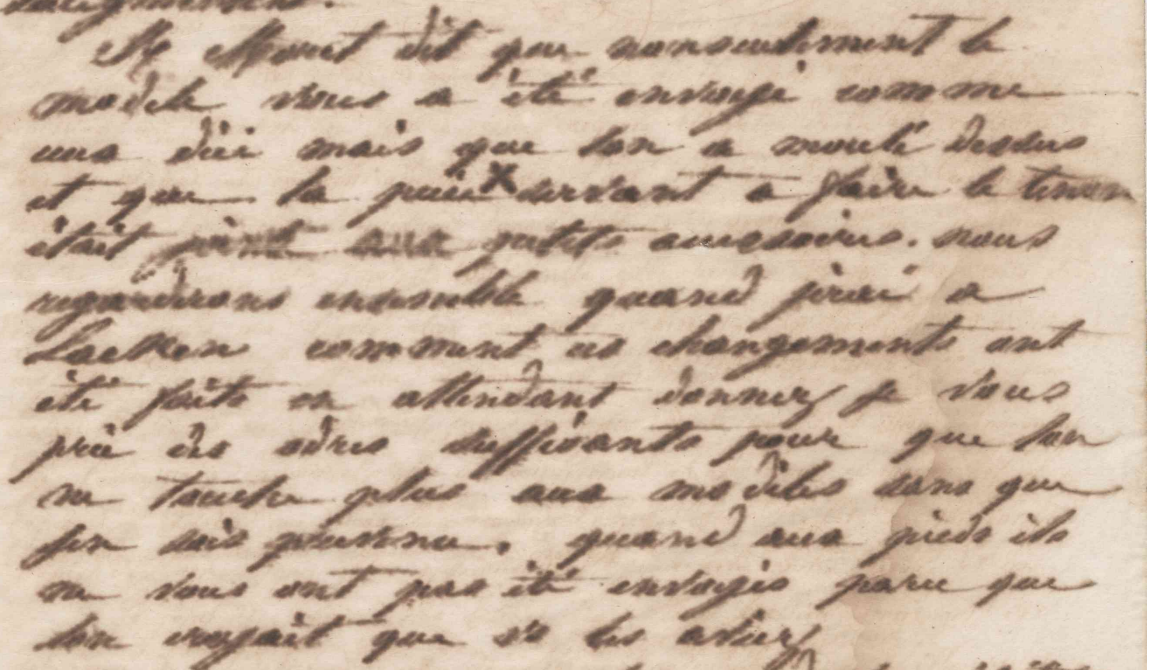 Mr Moret dit que nonseulement le
modele vous a été envoyé comme
una dèi mais que lon a moulé dessus
et que la pièce servant a faire le tenon
était jointe aux petits accessoires. nous
regarderons ensemble quand jirai a
Laeken comment ces changements ont
été faits en attendant donnez je vous
prie des odres suffisants pour que lon
ne touche plus aux modèles sans que
jen sois prevenu. quand aux pieds ils
ne vous ont pas été envoyés parce que
lon croyait que vs les aviez